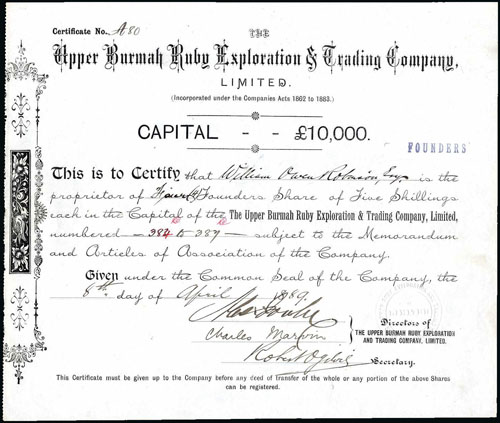 Certificate No. A80
THE
Upper Burmah Ruby Exploration & Trading Company,
LIMITED.
(Incorporated under the Companies Acts 1862 to 1883.)
CAPITAL - - £10,000.
FOUNDERS
This is to Certify that William Owen Robinson, Esq is the
proprietor of Founders Share of Five Shillings
each in the Capital of the The Upper Burmah Ruby Exploration & Trading Company, Limited,
numbered - 384 to 387 - subject to the Memorandum
and Articles of Association of the Company.
Given under the Common Seal of the Company, the
8th day of April 1889.
Charles Marvin
Robert Ogilvie
Directors of
THE UPPER BURMAH RUBY EXPLORATION
AND TRADING COMPANY, LIMITED.
Secretary.
This Certificate must be given up to the Company before any deed of transfer of the whole or any portion of the above Shares
can be registered.